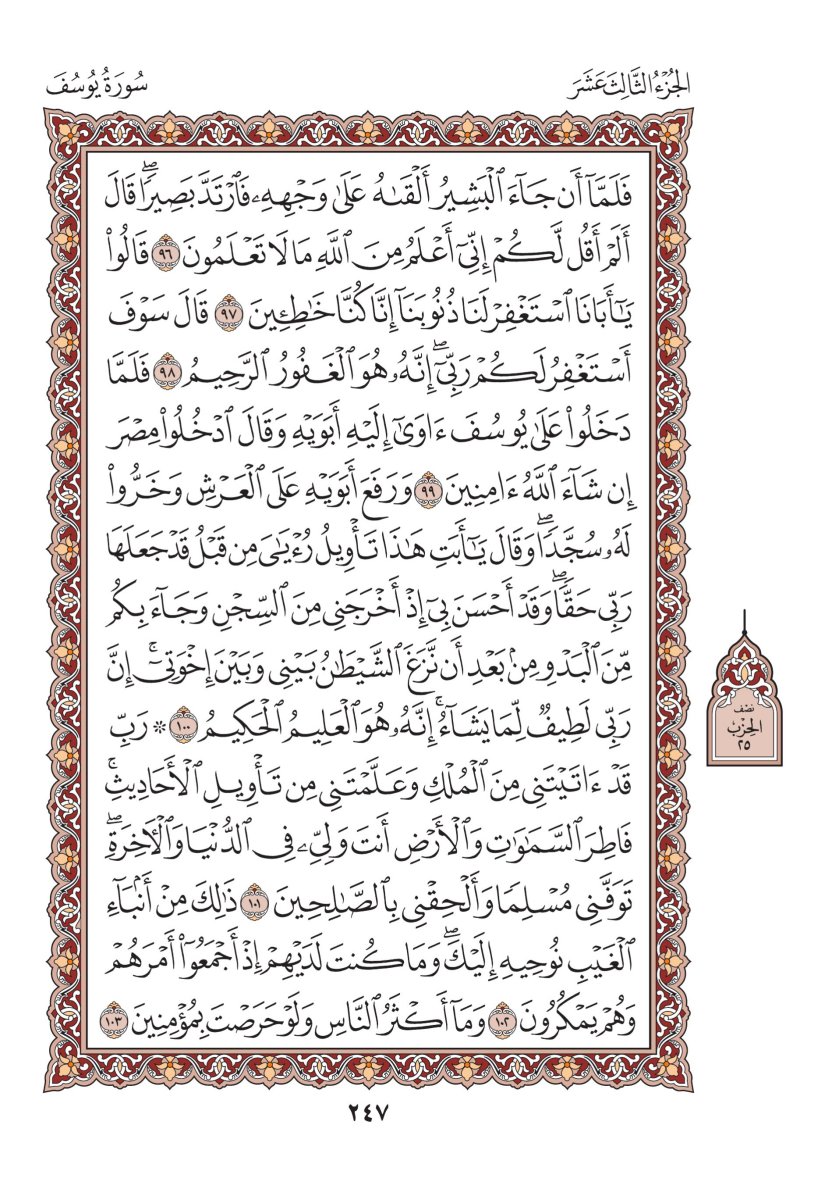 الجُزْءُ الثَّالِثَ عَشَرَ
سُورَةُ يُوسُفَ
فَلَمَّآ أَن جَآءَ ٱلْبَشِيرُ أَلْقَىٰهُ عَلَىٰ وَجْهِهِۦ فَٱرْتَدَّ بَصِيرًاۖ قَالَ
أَلَمْ أَقُل لَّكُمْ إِنِّىٓ أَعْلَمُ مِنَ ٱللَّهِ مَا لَا تَعْلَمُونَ ٩٦ قَالُوا۟
يَـٰٓأَبَانَا ٱسْتَغْفِرْ لَنَا ذُنُوبَنَآ إِنَّا كُنَّا خَـٰطِـِٔينَ ٩٧ قَالَ سَوْفَ
أَسْتَغْفِرُ لَكُمْ رَبِّىٓۖ إِنَّهُۥ هُوَ ٱلْغَفُورُ ٱلرَّحِيمُ ٩٨ فَلَمَّا
دَخَلُوا۟ عَلَىٰ يُوسُفَ ءَاوَىٰٓ إِلَيْهِ أَبَوَيْهِ وَقَالَ ٱدْخُلُوا۟ مِصْرَ
إِن شَآءَ ٱللَّهُ ءَامِنِينَ ٩٩ وَرَفَعَ أَبَوَيْهِ عَلَى ٱلْعَرْشِ وَخَرُّوا۟
لَهُۥ سُجَّدًاۖ وَقَالَ يَـٰٓأَبَتِ هَـٰذَا تَأْوِيلُ رُءْيَـٰىَ مِن قَبْلُ قَدْ جَعَلَهَا
رَبِّى حَقًّاۖ وَقَدْ أَحْسَنَ بِىٓ إِذْ أَخْرَجَنِى مِنَ ٱلسِّجْنِ وَجَآءَ بِكُم
مِّنَ ٱلْبَدْوِ مِنۢ بَعْدِ أَن نَّزَغَ ٱلشَّيْطَـٰنُ بَيْنِى وَبَيْنَ إِخْوَتِىٓۚ إِنَّ
رَبِّى لَطِيفٌ لِّمَا يَشَآءُۚ إِنَّهُۥ هُوَ ٱلْعَلِيمُ ٱلْحَكِيمُ ١٠٠ ۞ رَبِّ
قَدْ ءَاتَيْتَنِى مِنَ ٱلْمُلْكِ وَعَلَّمْتَنِى مِن تَأْوِيلِ ٱلْأَحَادِيثِۚ
فَاطِرَ ٱلسَّمَـٰوَٰتِ وَٱلْأَرْضِ أَنتَ وَلِىِّۦ فِى ٱلدُّنْيَا وَٱلْـَٔاخِرَةِۖ
تَوَفَّنِى مُسْلِمًا وَأَلْحِقْنِى بِٱلصَّـٰلِحِينَ ١٠١ ذَٰلِكَ مِنْ أَنۢبَآءِ
ٱلْغَيْبِ نُوحِيهِ إِلَيْكَۖ وَمَا كُنتَ لَدَيْهِمْ إِذْ أَجْمَعُوٓا۟ أَمْرَهُمْ
وَهُمْ يَمْكُرُونَ ١٠٢ وَمَآ أَكْثَرُ ٱلنَّاسِ وَلَوْ حَرَصْتَ بِمُؤْمِنِينَ ١٠٣
نصف
الحِزْب
٢٥
٢٤٧